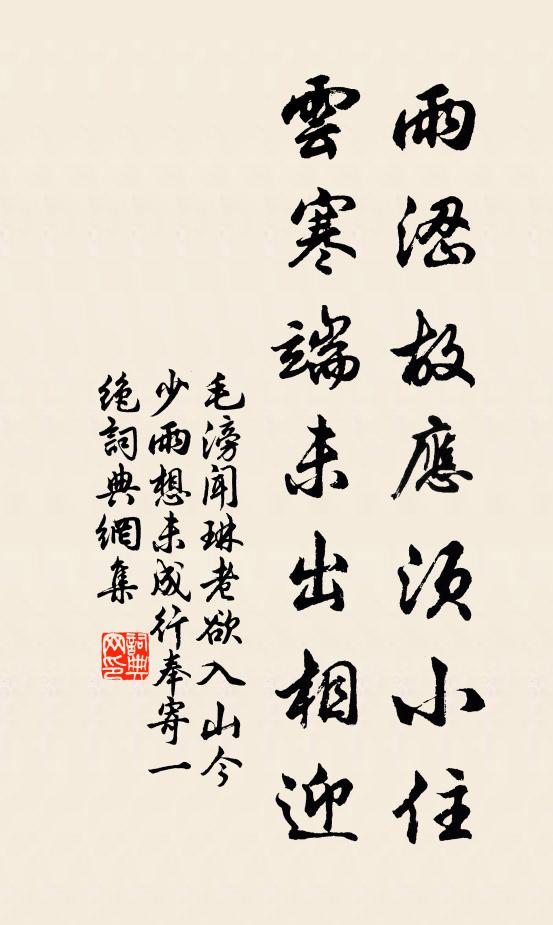 雨涩故應須小住
雲寒端未出相迎
毛滂闻琳老欲入山今
少雨想未成行奉寄一
绝詞典網集
詞典
网印